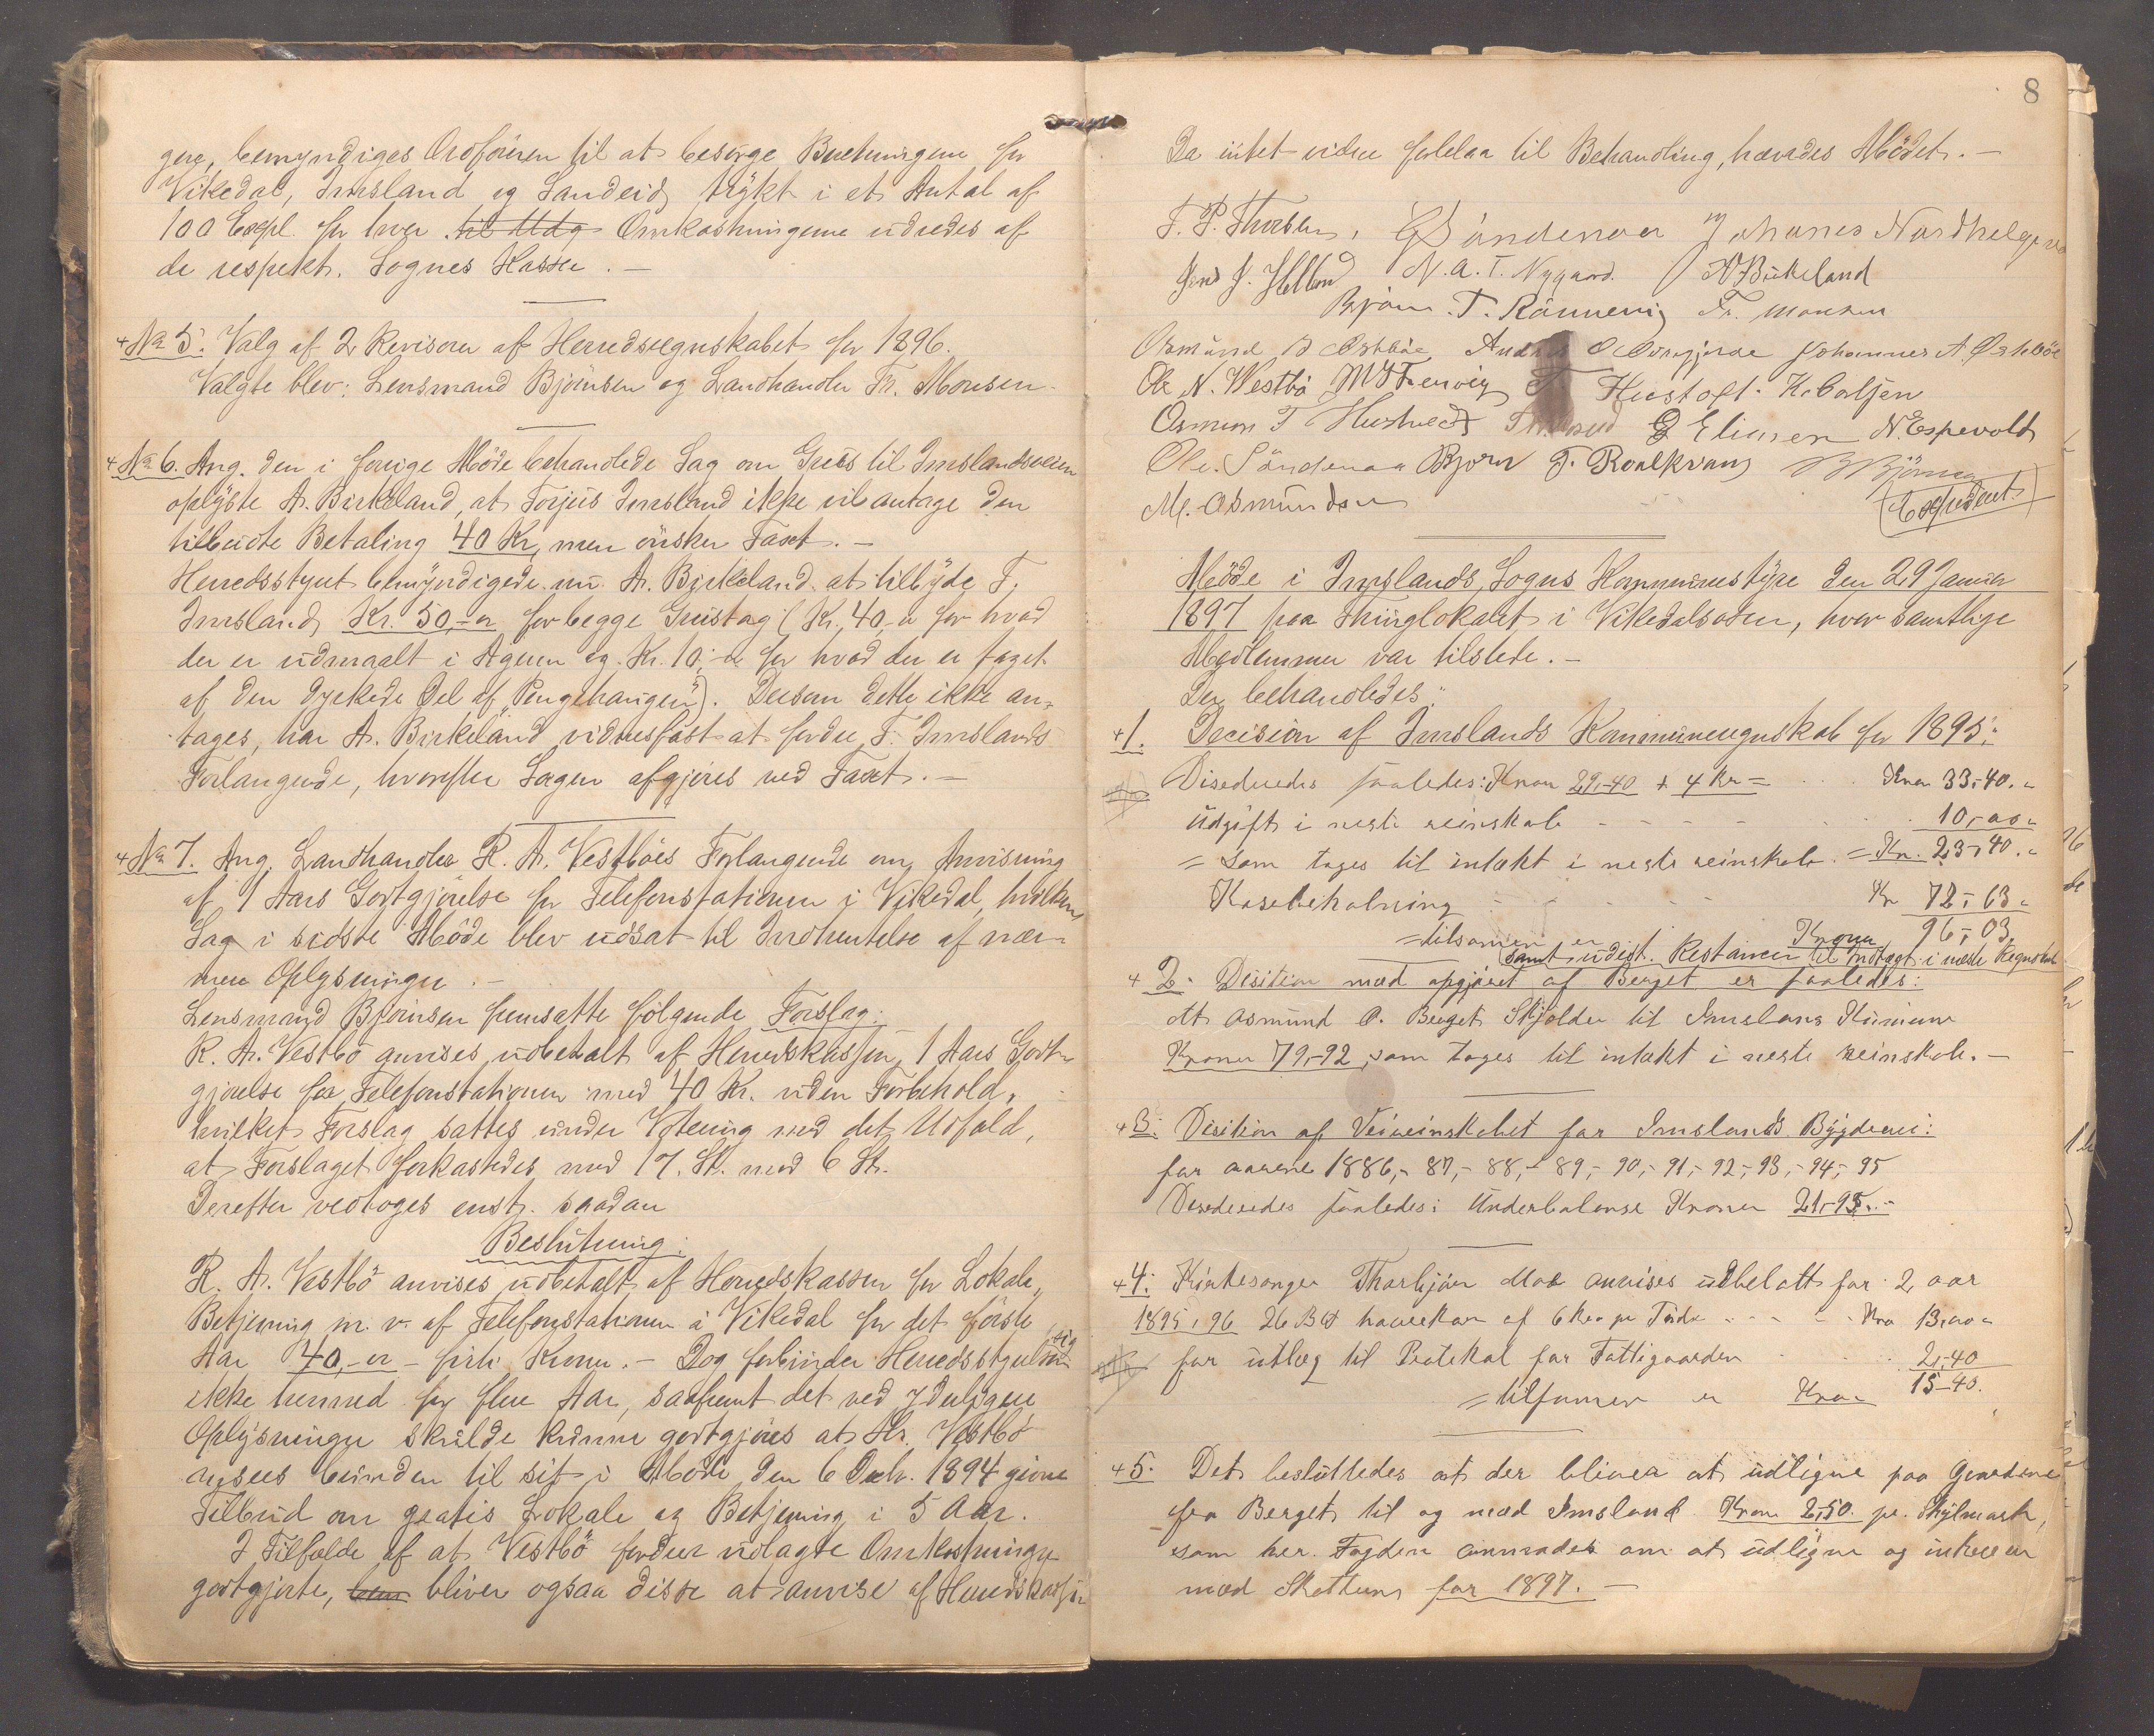 gere, bemyndiges Ordföreren til at besörge Beretningene for
Vikedal, Imsland og Sandeid trykt i et Antal af
100 Expl. for hver til Udg Omkostningerne udredes af
de respekt. Sognes Kasser. —
+ No 5. Valg af 2 Revisorer af Herredsregnskabet for 1896.
Valgte blev: Lensmand Björnsen og Landhandler Fr. Monsen.
+ No 6. Ang. den i forrige Möde behandlede Sag om Grus til Imslandsveien
oplyste A. Birkeland, at Torjus Imsland ikke vil antage den
tilbudte Betaling 40 Kr, men önsker Taxt. —
Herredsstyret bemyndigede nu A. Birkeland at tilbyde T.
Imsland Kr. 50,- for begge Grustag (Kr. 40,- for hvad
der er udmaalt i Ageren og Kr. 10,- for hvad der er taget
af den dyrkede Del af "Pengehaugen"). Dersom dette ikke an-
tages, har A. Birkeland vidnesfast at fordre T. Imslands
Forlangende, hvorefter Sagen afgjöres ved Taxt. —
+ No 7. Ang. Landhandler R. A. Vestböes Forlangende om Anvisning
af 1 Aars Godtgjörelse for Telefonstationen i Vikedal, hvilken
Sag i sidste Möde blev udsat til Indhentelse af nær-
mere Oplysninger. —
Lensmand Björnsen fremsatte fölgende Forslag:
R. A. Vestbö anvises udbetalt af Herredskassen 1 Aars Godt-
gjörelse for Telefonstationen med 40 Kr. uden Forbehold,
hvilket Forslag sattes under Votering med det Udfald,
at Forslaget forkastedes med 17 St. mod 6 St.
Derefter vedtoges enst. saadan
Beslutning:
R. A. Vestbö anvises udbetalt af Herredskassen for Lokale,
Betjening m. v. af Telefonstationen i Vikedal for det förste
Aar 40,- er - firti Kroner. — Dog forbinder Herredsstyret sig
ikke hermed for flere Aar, saafremt det ved ydeligere
Oplysninger skulde kunne godtgjöres at Hr. Vestbö
ansees bunden til sit i Möde den 6 Decb. 1894 givne
Tilbud om gratis Lokale og Betjening i 5 Aar.
I Tilfælde af at Vestbö fordrer udlagte Omkostninger
godtgjorte, bliver ogsaa disse at anvise af Herredskassen
8
Da intet videre forelaa til Behandling, hævedes Mödet. —
T. P. Thorsen, Söndenaa Johanes Nordhelge
Jens J. Helland N. A. T. Nygaard. A Birkeland
Björn T. Rönnevig Fr. Monsen
Osmund Östböe Andreas O Johannes A. Østeböe
Ole N. Westbö Hustoft K. Carlsen
Osmun T Hustvedt G Eliasen N. Espevold
Ole. Söndenaa Bjorn T. Roalkvam B Björnsen
M. Osmundsen
Möde i Imslands Sogns Kommunestyre den 29 Januar
1897 paa Thinglokalet i Vikedalsøren, hvor samtlige
Medlemmer var tilstede. —
Der behandledes:
+ 1. Decision af Imslands Kommuneregnskab for 1895:
Disederedes saaledes: Kroner 29,-40 + 4 Kr = Kroner 33,-40.
Udgift i neste reinskab 10,-00
= som tages til intækt i neste reinskab. = Kr. 23,-40.
Kasebeholning Kr 72,-63
= tilsamen er Kroner 96,-03
samt udest. Restancer til Indtægt i næste Regnskab
+ 2. Disition med opgjöret af Berget er saaledes:
At Osmund O. Berget Skylder til Imslans Kumune
Kroner 79,-92, som tages til intækt i neste reinskab. —
+ 3: Disition af Veireinskabet for Imslands Bygdevei:
for aarene 1886,- 87,- 88,- 89,- 90,- 91,- 92,- 93,- 94,- 95
Disederedes saaledes: Underbalanse Kroner 21,-95. -
+ 4: Kirkesanger Thorbjörn Moe anvises udbetalt for 2 aar
1895, 96 26 havrekorn af 6 Kr pr Tönde Kro 13,00
for utlæg til Protekol for Fattigaarden 2,-40
= tilsamen er Kro 15-40.
+ 5. Det besluttedes at der bliver at udligne paa Gaardene
fra Berget til og med Imsland Kroner 2,50. pr. Skylmark,
som her. Fogden anmodes om at udligne og inkreve
med Skatten for 1897. —